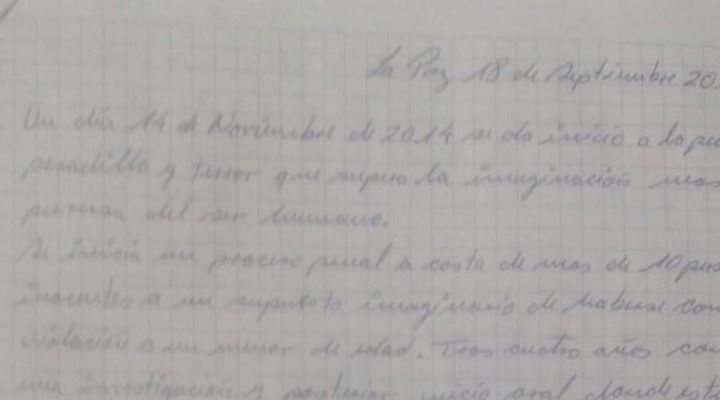 La Paz 18 de Septiembre 20
Un día 14 de Noviembre de 2014 se da inicio a la pe
pesadilla y terror que supera la imaginación mas
perversa del ser humano.
Se inicia un proceso penal a costa de mas de 10 pe
inocentes a un supuesto imaginario de haberse com
violación a un menor de edad. Tras cuatro años con
una investigación y posterior juicio oral donde est